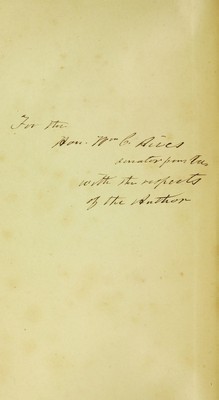 For the
Hon. Wm C. Rives
senator from Va
with the respects
of the Author